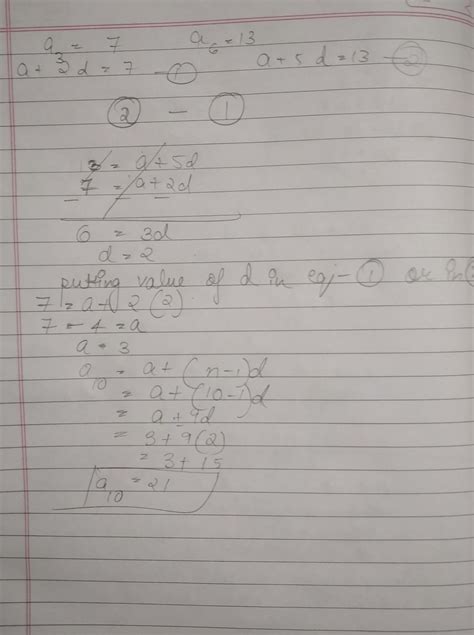 a₃ = 7 a₆ = 13
a + 2d = 7 — ① a + 5d = 13 — ②
② — ①
= a + 5d
7 = a + 2d
6 = 3d
d = 2
putting value of d in eq - ① or in
7 = a + 2(2)
7 - 4 = a
a = 3
a₁₀ = a + (n-1)d
= a + (10-1)d
= a + 9d
= 3 + 9(2)
= 3 + 15
a₁₀ = 21